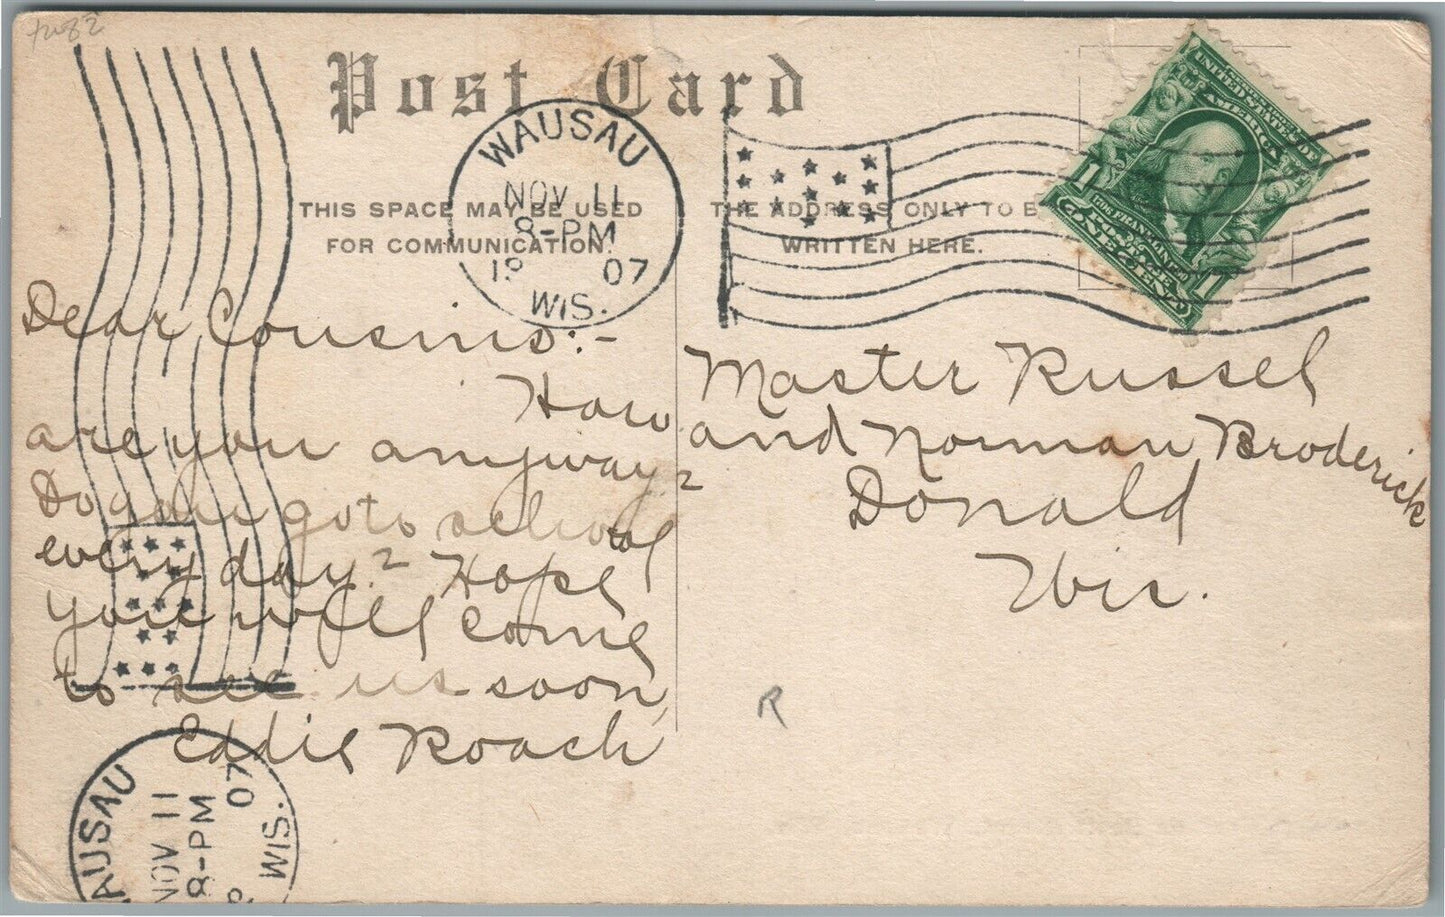 Post Card
THIS SPACE MAY BE USED
FOR COMMUNICATION.
THE ADDRESS ONLY TO B
WRITTEN HERE.
WAUSAU
NOV 11
8-PM
07
WIS.
UNITED STATES OF
AMERICA
1
FRANKLIN
POSTAGE
ONE CENT
1
Dear Cousins:-
How
are you anyway?
Do you go to school
every day? Hope
you will come
to see us soon,
Eddie Roach
Master Russel
and Norman Broderick
Donald
Wis.
R
AUSAU
NOV 11
8-PM
07
WIS.